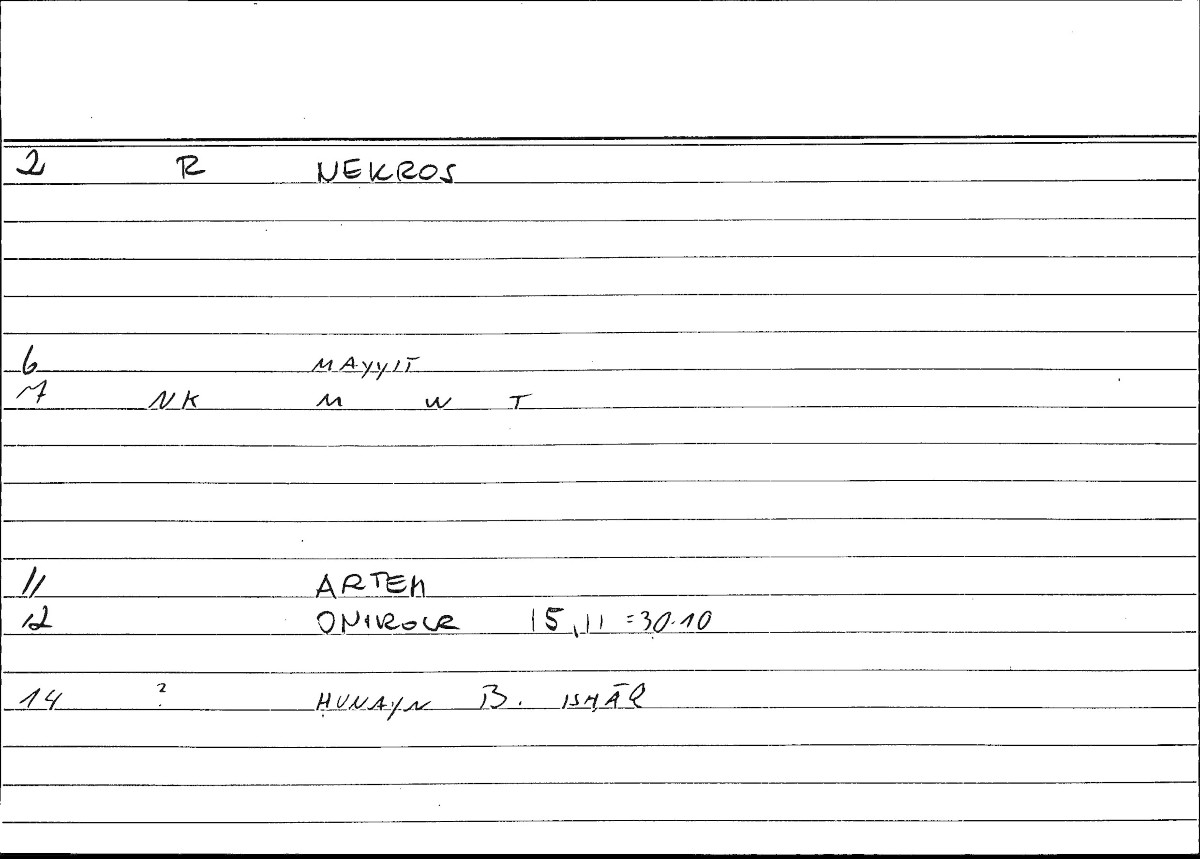 2 R NEKROS
6 MAYYIT
7 NK M W T
11 ARTEM
12 ONIROCR 15,11 =30.10
14 ? ḤUNAYN B. ISḤĀQ